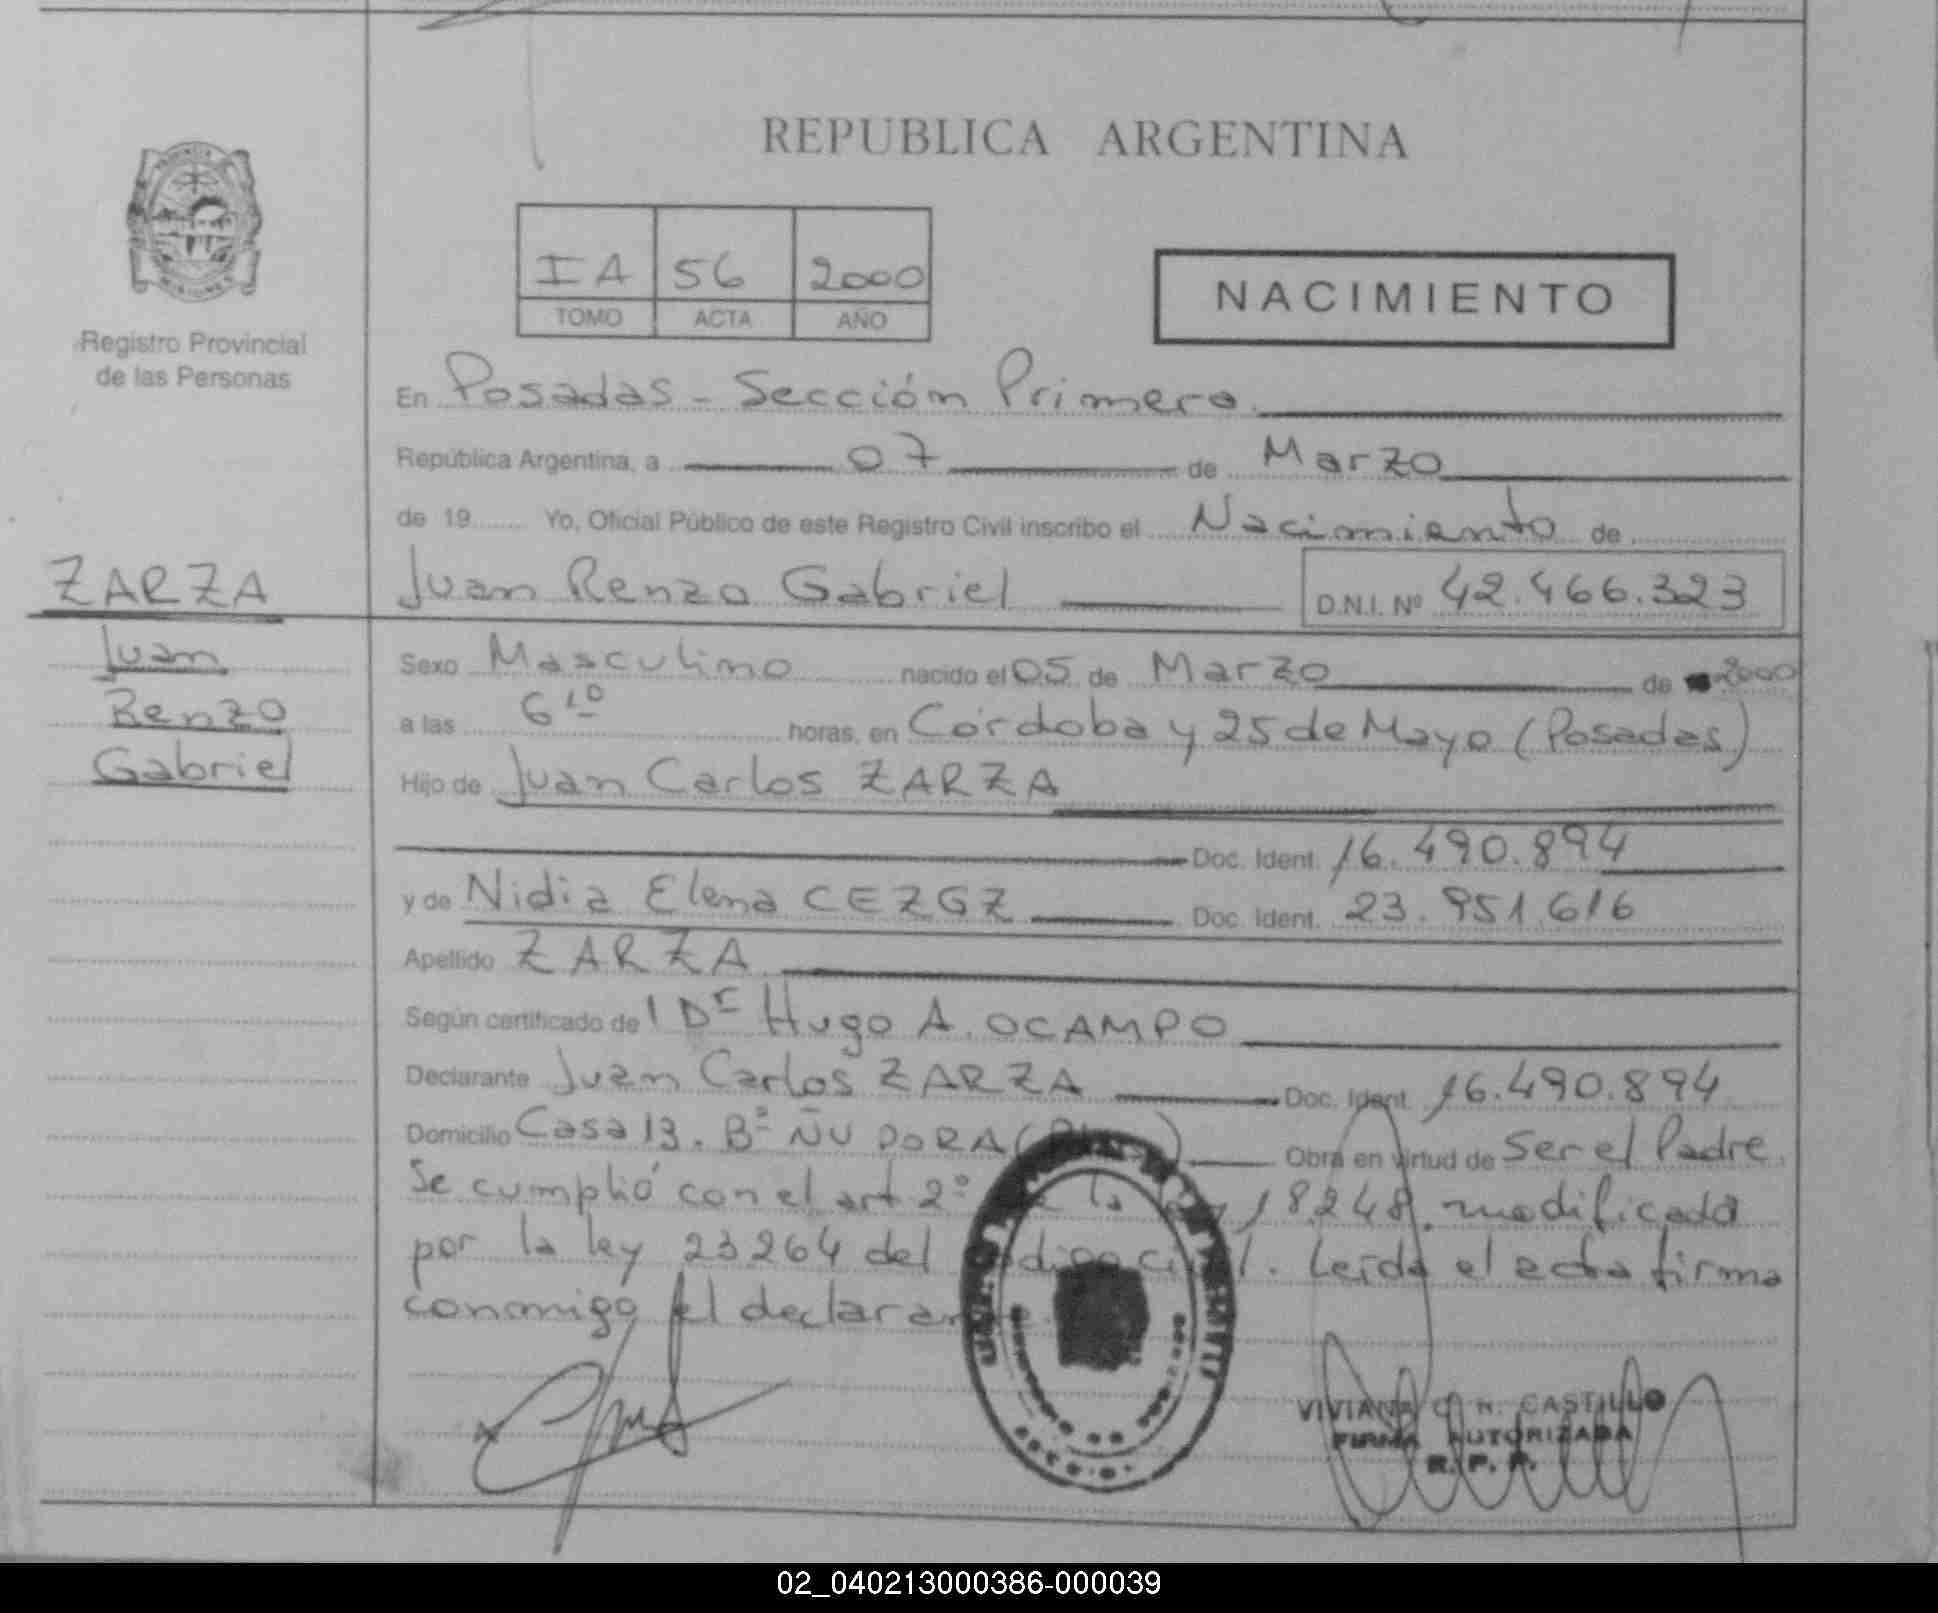 REPUBLICA ARGENTINA
IA 56 2000
TOMO ACTA AÑO
NACIMIENTO
Registro Provincial
de las Personas
En Posadas - Sección Primera
República Argentina, a 07 de Marzo
de 19 Yo, Oficial Público de este Registro Civil inscribo el Nacimiento de
ZARZA
Juan
Renzo
Gabriel
Juan Renzo Gabriel D.N.I. Nº 42.466.323
Sexo Masculino nacido el 05 de Marzo de 2000
a las 6 10 horas, en Córdoba y 25 de Mayo (Posadas)
Hijo de Juan Carlos ZARZA
Doc. Ident. 16.490.894
y de Nidia Elena CEZGZ Doc. Ident. 23.951.616
Apellido ZARZA
Según certificado del Dr Hugo A. OCAMPO
Declarante Juan Carlos ZARZA Doc. Ident. 16.490.894
Domicilio Casa 13. Bº ÑU PORA Obra en virtud de Ser el Padre.
Se cumplió con el art 2º de la ley 18.248. modificada
por la ley 23264 del codigo civil. Leída el acta firma
conmigo el declarante.
VIVIANA C. N. CASTILLO
FIRMA AUTORIZADA
R. P. P.
02_040213000386-000039